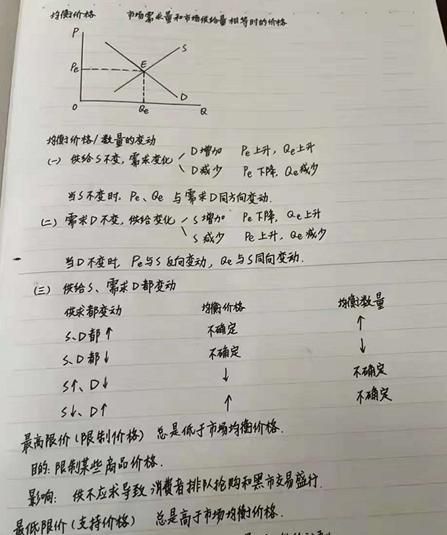 均衡价格 市场需求量和市场供给量相等时的价格
P
S
Pe E
D
O Qe Q
均衡价格/数量的变动
(一) 供给S不变,需求变化 D增加 Pe上升,Qe上升
D减少 Pe下降,Qe减少
当S不变时,Pe、Qe 与需求D同方向变动.
(二) 需求D不变,供给变化 S增加 Pe下降,Qe上升
S减少 Pe上升,Qe减少
当D不变时,Pe与S反向变动,Qe与S同向变动.
(三) 供给S、需求D都变动
供求都变动 均衡价格 均衡数量
S、D都↑ 不确定 ↑
S、D都↓ 不确定 ↓
S↑、D↓ ↓ 不确定
S↓、D↑ ↑ 不确定
最高限价(限制价格) 总是低于市场均衡价格.
目的:限制某些商品价格.
影响: 供不应求导致消费者排队抢购和黑市交易盛行.
最低限价(支持价格) 总是高于市场均衡价格.